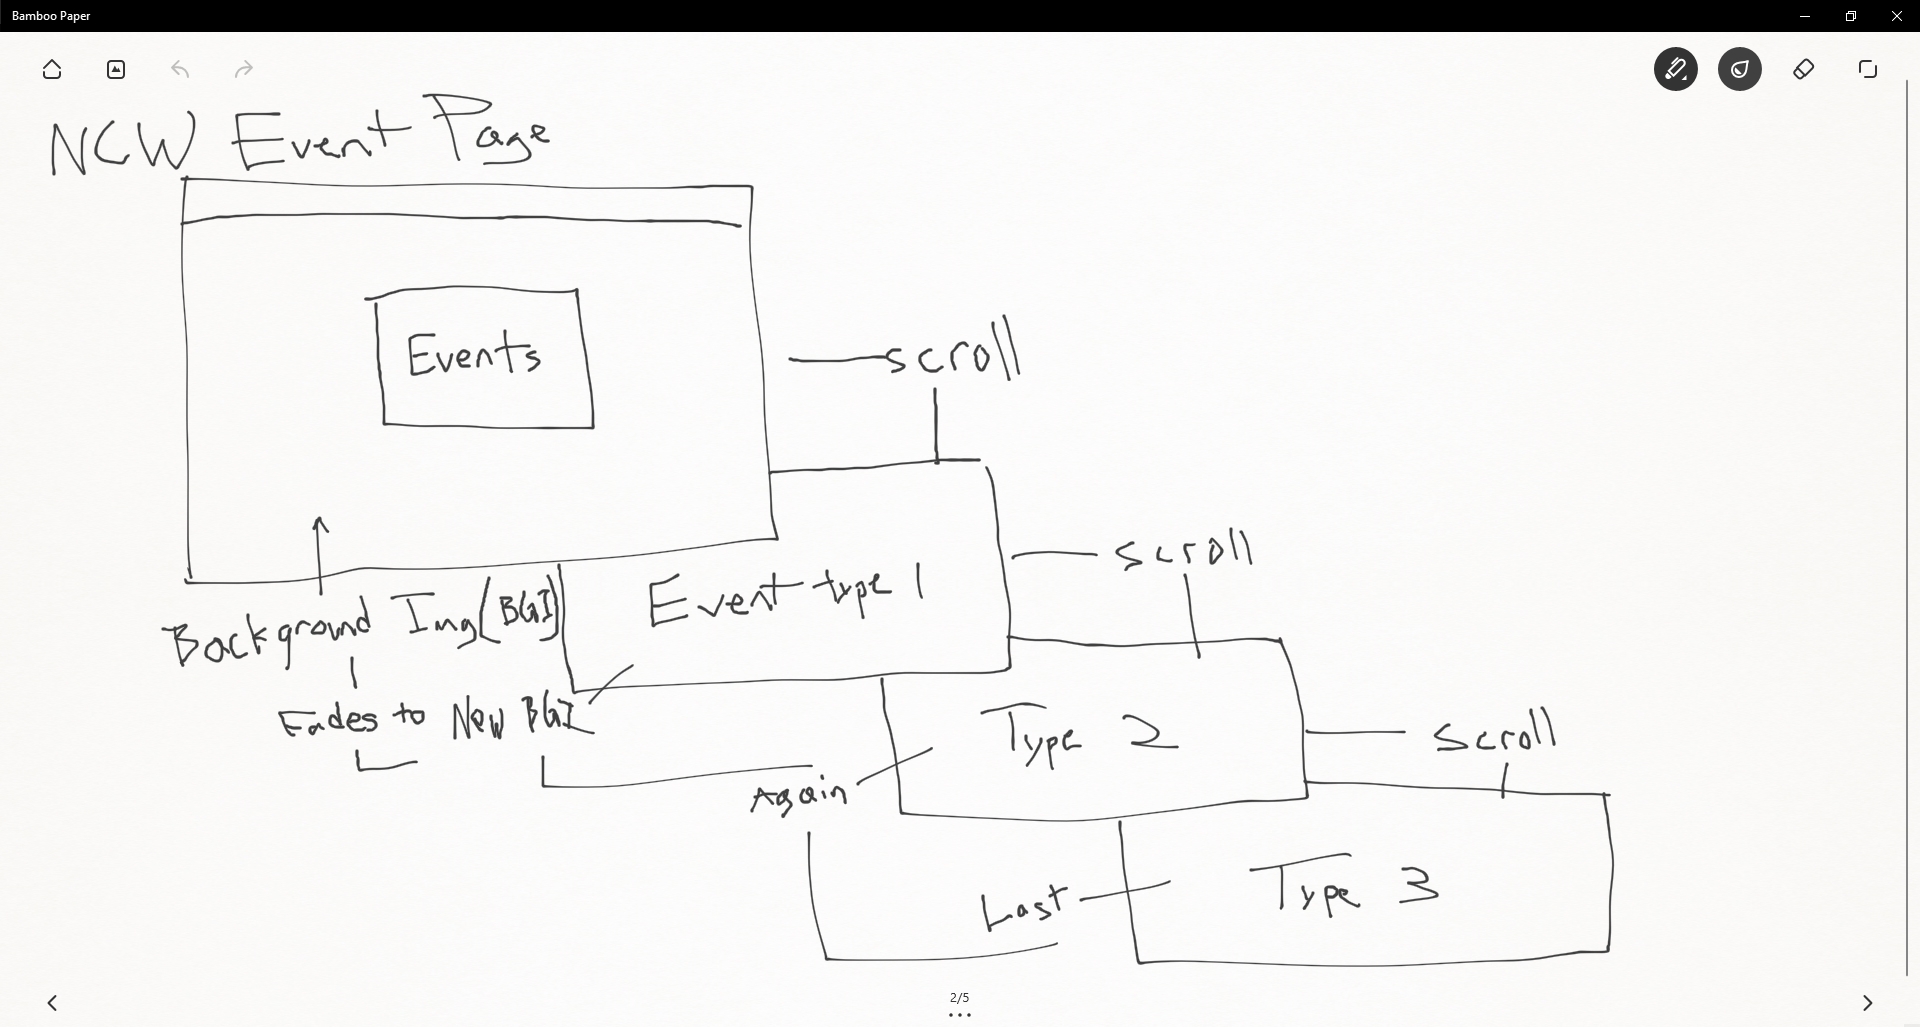 Bamboo Paper
NCW Event Page
Events
scroll
Event type 1
scroll
Background Img(BGI)
Fades to New BGI
Type 2
scroll
Again
Type 3
Last
2/5